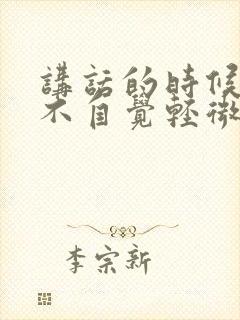 講話的時候
不自覺輕微
李宗新